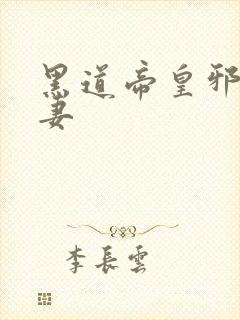 黑道帝皇邪
妻
李長雲